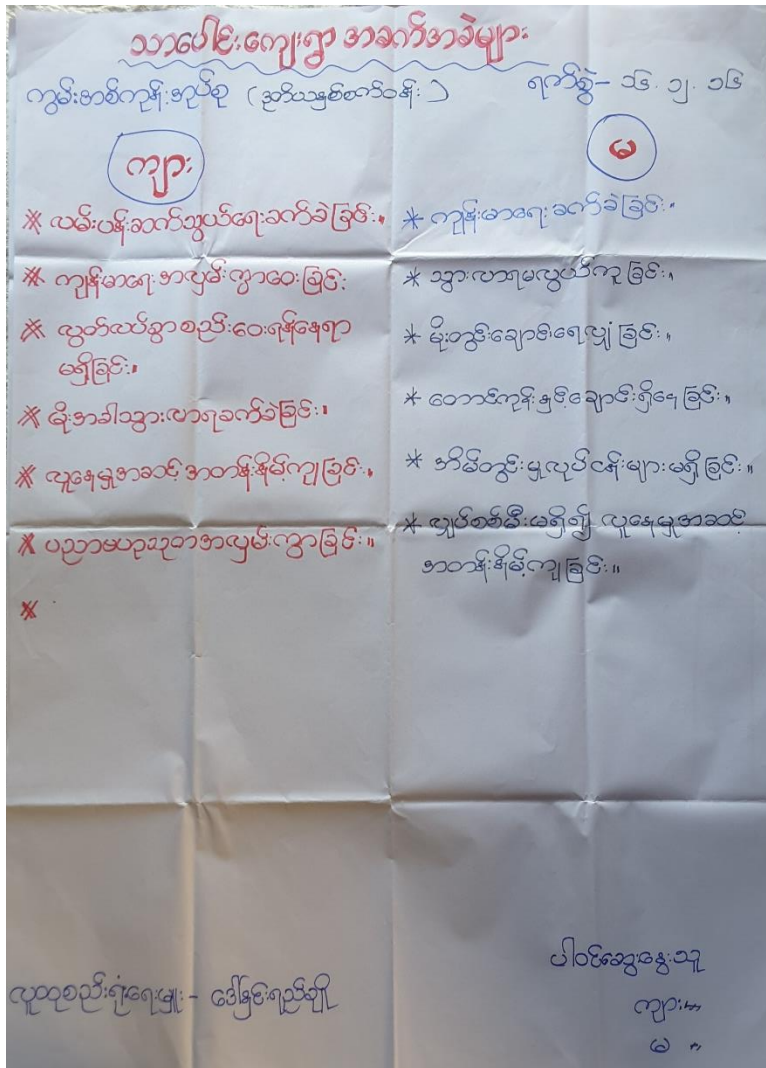 သာပေါင်းကျေးရွာ အခက်အခဲများ
ကွမ်းတစ်ကုန်းအုပ်စု (ဒုတိယနှစ်စက်ဝန်း)
ရက်စွဲ- ၁၆.၁၂.၁၆
ကျား
※ လမ်းပန်းဆက်သွယ်ရေးခက်ခဲခြင်း။
※ ကျန်မာရေးအလှမ်းကွာဝေးခြင်း
※ လွတ်လပ်စွာစည်းဝေးရန်နေရာ
မရှိခြင်း။
※ မိုးအခါသွားလာရခက်ခဲခြင်း။
※ လူနေမှုအဆင့်အတန်းနိမ့်ကျခြင်း။
※ ပညာဗဟုသုတအလှမ်းကွာခြင်း။
※
မ
* ကျန်းမာရေးခက်ခဲခြင်း။
* သွားလာရမလွယ်ကူခြင်း။
* မိုးတွင်းချောင်းရေလျှံခြင်း။
* တောင်ကုန်းနှင့်ချောင်းရှိနေခြင်း။
* အိမ်တွင်းမှုလုပ်ငန်းများမရှိခြင်း။
* လျှပ်စစ်မီးမရှိ၍ လူနေမှုအဆင့်
အတန်းနိမ့်ကျခြင်း။
ပါဝင်ဆွေးနွေးသူ
လူထုစည်းရုံးရေးမှူး - ဒေါ်နှင်းရည်ချို
ကျား
မ